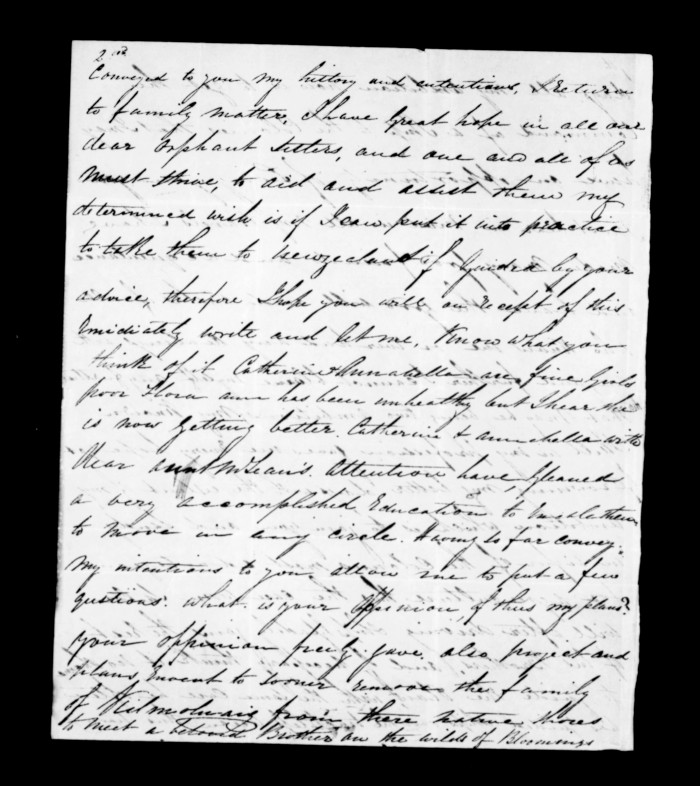 2nd
Conveyed to you my history and intentions, I Return
to family matter, I have great hope in all our
dear Orphant Sisters, and one and all of us
must strive, to aid and assist them my
determined wish is if I can put it into practice
to take them to Newzealand if Guided by your
advice, therefore I hope you will on Receipt of this
Emidiately write and let me, Know what you
think of it Catherine & Annabella are fine Girls
poor Flora ann has been unhealthy but I hear she
is now getting better. Catherine & annabella with
dear aunt McLean's. attention have, Gleaned
a very accomplished Education to
to move in any circle. Having so far convey.
my intentions to you, allow me to put a few
qustions. what is your Oppinion, of thus my plans?
your oppinion freely gave also project and
plans, to sooner remove the family
of Kilmoluaig from there native Shores
to meet a beloved Brother on the wilds of Bloomings